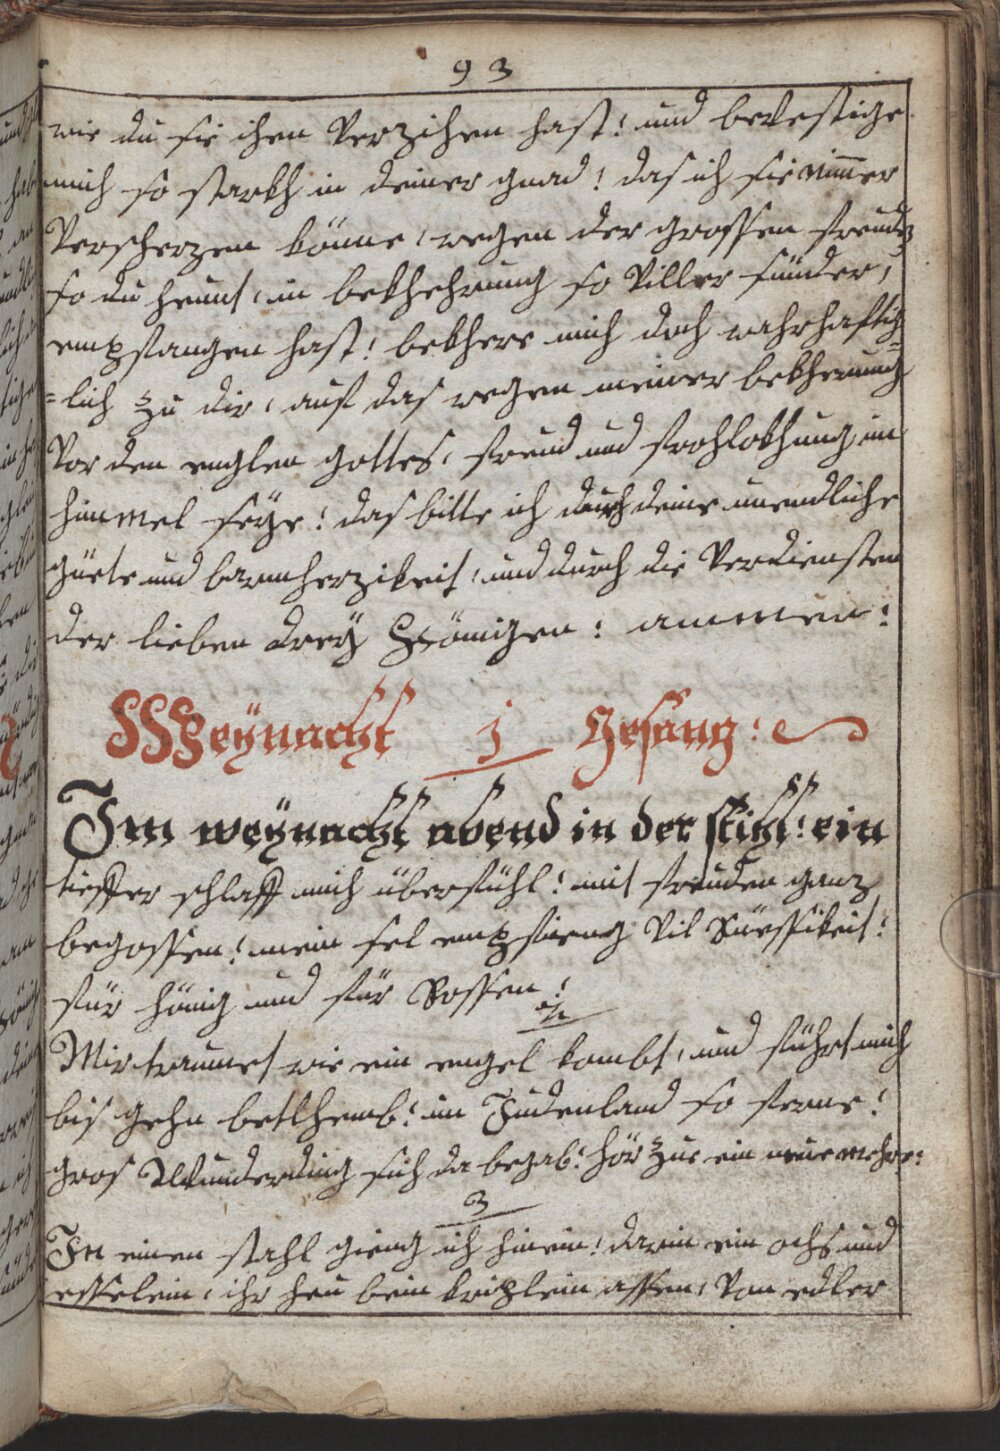 93
wie du sie ihen Verzihen hast! und bevestige
mich so starkh in deiner gnad! das ich sie nim̅er
Verscherzen könne, wegen der grossen freude
so du heunt, in bekhehrung so Viller sünder,
empfangen hast! bekhere mich doch wahrhaftig
=lich zu dir, auf das wegen meiner bekherung
Vor den englen gottes, freud und frohlokhung, im
himmel seÿe! das bitte ich durch deine unendliche
güete und barmherzikeit, und durch die Verdiensten
der lieben dreÿ Hönigen: ammen:
Weÿnacht 1 Gesang:
Im weÿnacht abend in der stihl: ein
tieffer schlaff mich überfühl! mit freuden ganz
begossen! mein sel empfieng Vil Süessikeit!
für hönig und für Rossen!
2
Mir traumet wie ein engel kombt, und führt mich
bis gehn betlhemb! im Judenland so ferne!
gros Wunderding sich da begab! hör zue ein neue mehre:
3
In einen stahl gieng ich hinein! darin ein ochs und
esselein, ihr heu bein kriplein assen, Von edler